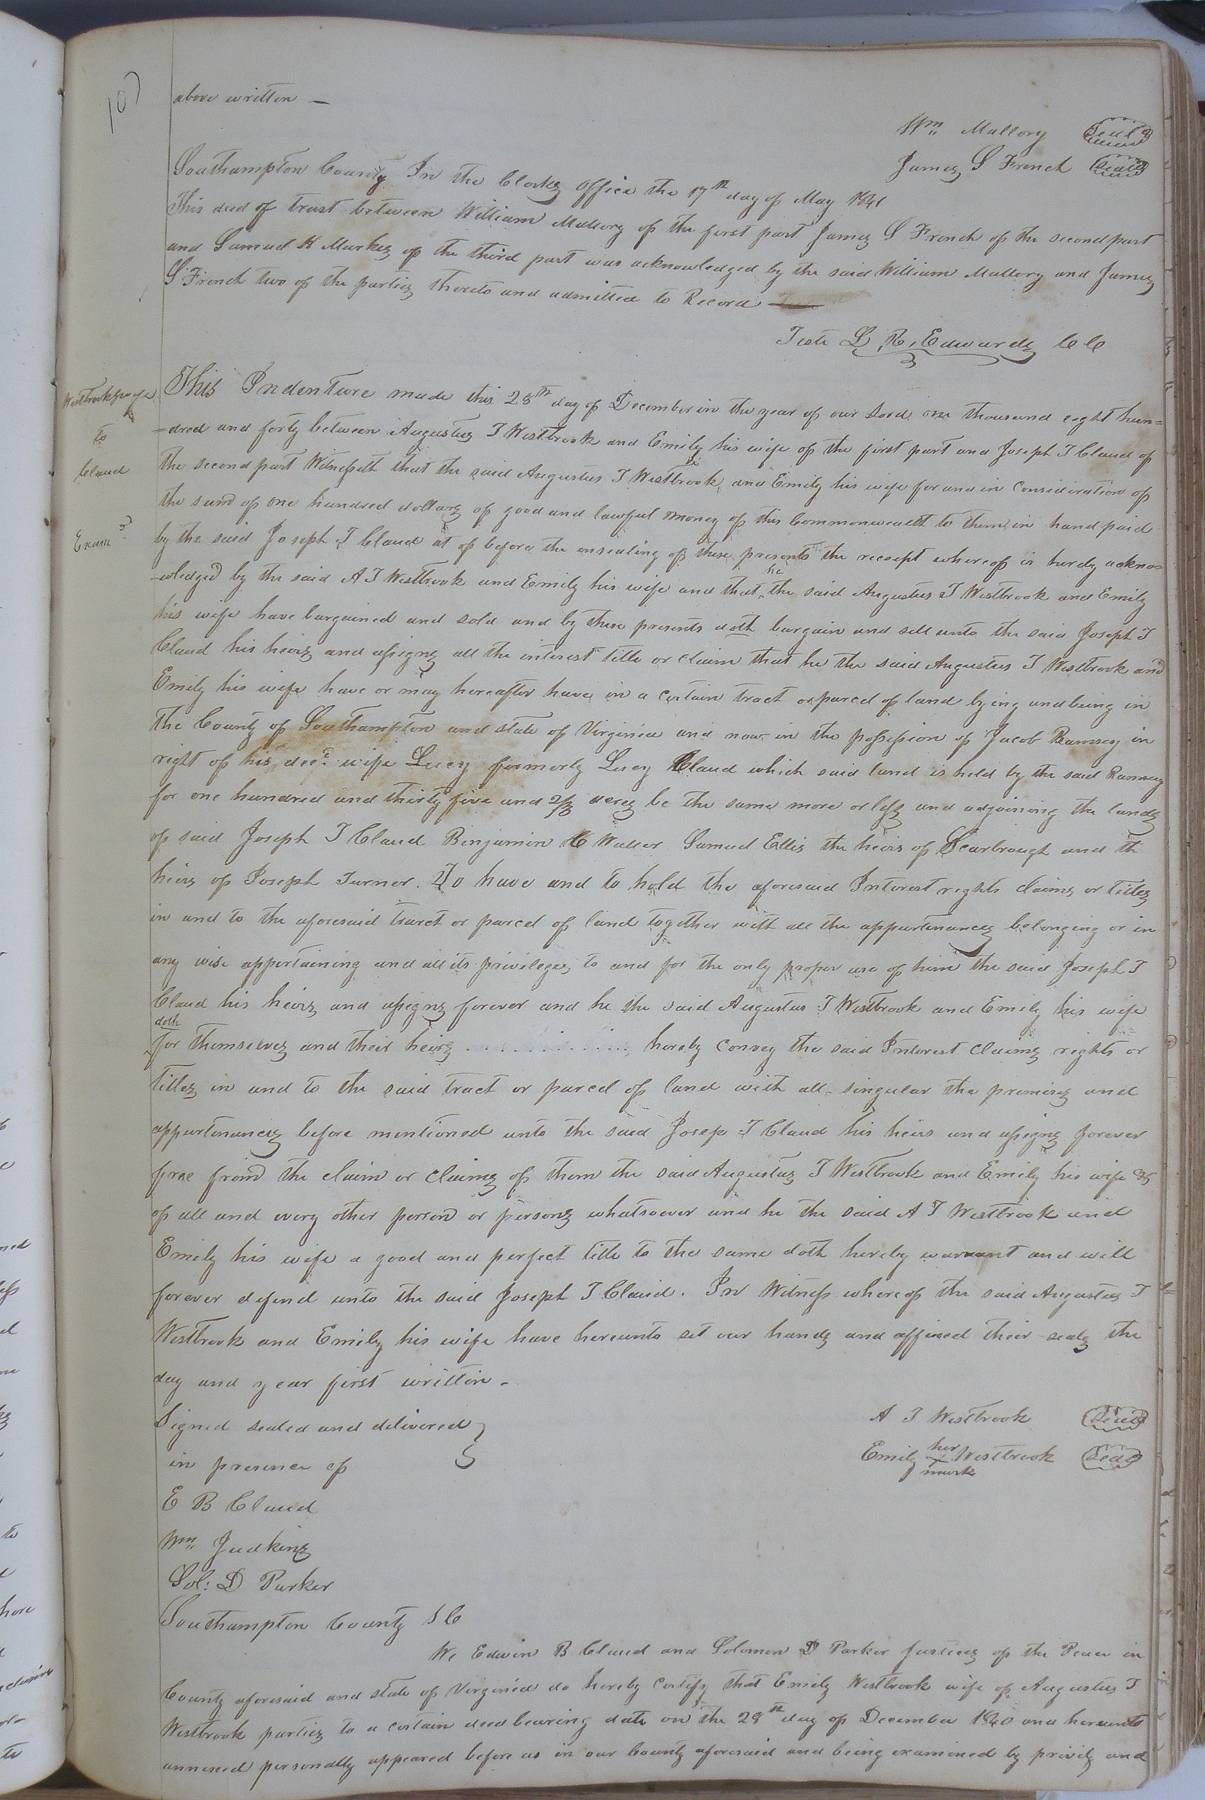 107
above written —
Wm Mallory Seal
James S French Seal
Southampton County In the Clerks office the 17th day of May 1841
This deed of trust between William Mallory of the first part James S French of the second part
and Samuel K Markes of the third part was acknowledged by the said William Mallory and James
S French two of the parties thereto and admitted to Record —
Teste L. R. Edwards CC
Westbrook & wife
to
Claud
Examd
This Indenture made this 28th day of December in the year of our Lord one thousand eight hun=
-dred and forty between Augustus T Westbrook and Emily his wife of the first part and Joseph T Claud of
the second part Witnesseth that the said Augustus T Westbrook and Emily his wife for and in Consideration of
the sum of one hundred dollars of good and lawful money of this Commonwealt to them in hand paid
by the said Joseph T Claud at of before the ensealing of these presents the receipt whereof is herby acknow
-wledged by the said A T Westbrook and Emily his wife and that he the said Augustus T Westbrook and Emily
his wife have bargained and sold and by these presents doth bargain and sell unto the said Joseph T
Claud his heirs and assigns all the interest title or claim that he the said Augustus T Westbrook and
Emily his wife have or may hereafter have in a certain tract or parcel of land lying and being in
the County of Southampton and state of Virginia and now in the possession of Jacob Ramsey in
right of his decd wife Lucy formerly Lucy Claud which said land is held by the said Ramsey
for one hundred and thirty five and 2/3 acres be the same more or less and adjoining the lands
of said Joseph T Claud Benjamin C Waller Samuel Ellis the heirs of Scarbrough and th
heirs of Joseph Turner. To have and to hold the aforesaid Interest rights claims or titles
in and to the aforesaid tract or parcel of land together with all the appurtenances belonging or in
any wise appertaining and all its privileges to and for the only proper use of him the said Joseph T
Claud his heirs and assigns forever and he the said Augustus T Westbrook and Emily his wife
doth
for themselves and their heirs . . . . . . . . . . . hereby convey the said Interest claims rights or
titles in and to the said tract or parcel of land with all singular the premises and
appurtenances before mentioned unto the said Josep T Claud his heirs and assigns forever
free from the claim or claims of them the said Augustus T Westbrook and Emily his wife &
of all and every other person or persons whatsoever and he the said A T Westbrook and
Emily his wife a good and perfect title to the same doth hereby warrant and will
forever defend unto the said Joseph T Claud. In Witness whereof the said Augustus T
Westbrook and Emily his wife have hereunto set our hands and affixed their seals the
day and year first written -
Signed sealed and delivered
in presence of
A T Westbrook Seal
Emily her X mark Westbrook Seal
E B Claud
Wm Judkins
Sol: D Parker
Southampton County SC
We Edwin B Claud and Solomon D Parker Justices of the Peace in
County aforesaid and state of Virginia do hereby certify that Emily Westbrook wife of Augustus T
Westbrook parties to a certain deed bearing date on the 28th day of December 1840 and hereunto
annexed personally appeared before us in our County aforesaid and being examined by privily and